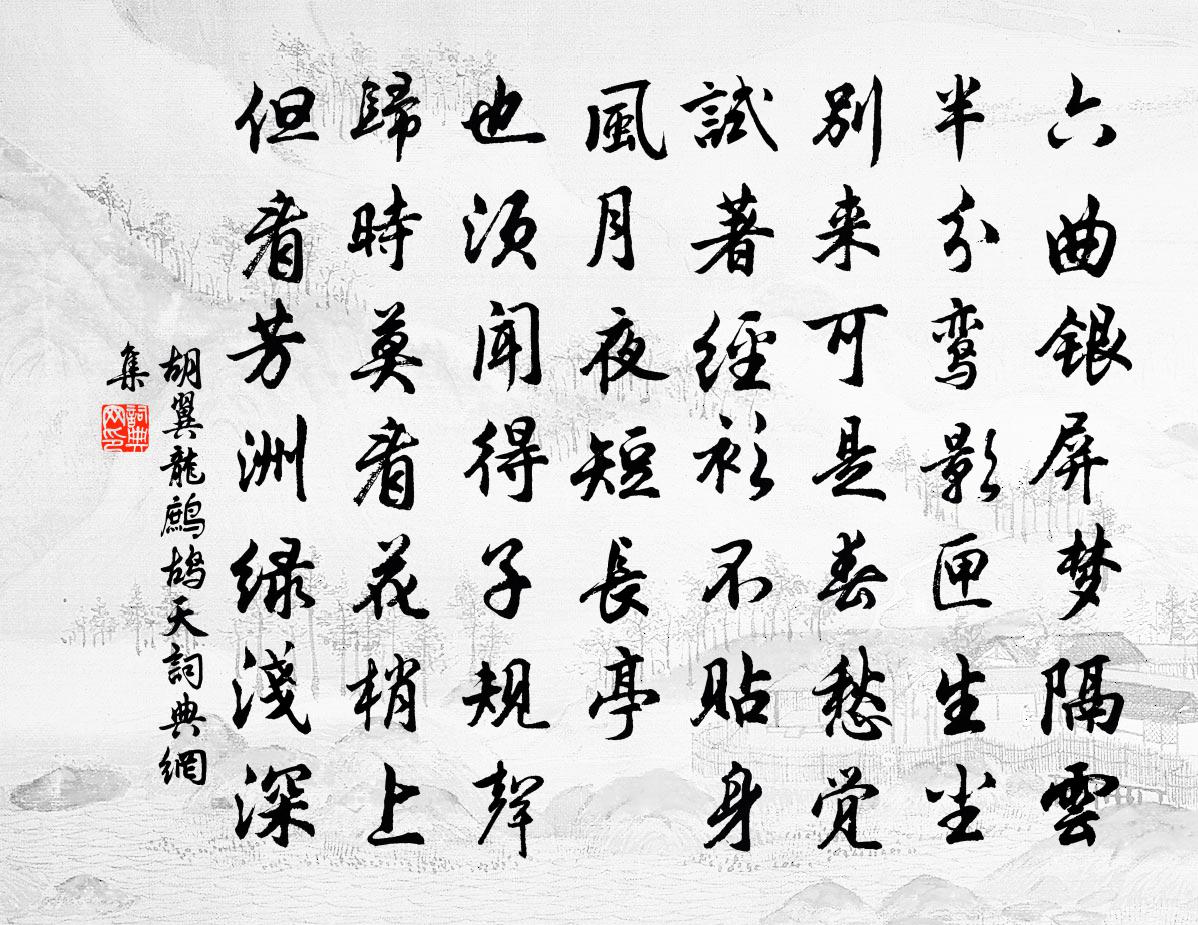 六曲银屏梦隔雲
半分鸾影匣生尘
别来可是春愁觉
試著經衫不貼身
風月夜短長亭
也须闻得子規聲
歸時莫看花梢上
但看芳洲绿淺深
胡翼龍鷓鴣天詞典網
集
詞典网印